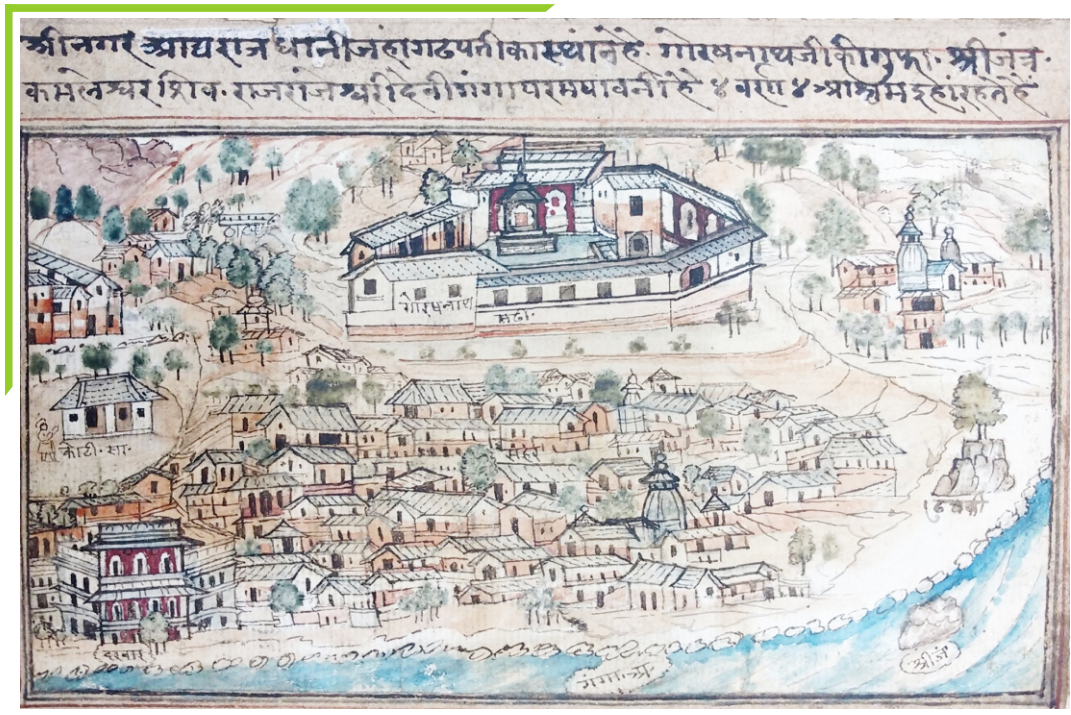 श्रीनगर आद्य राजधानी जहां गढपतीका स्थान हे गोरषनाथजीकी गुफा. श्रीजंत्र.
कमलेश्वर शिव. राजराजेश्वरी देवी गंगा परम पावनी हे ४ वर्ण ४ आश्रम इहां रहते हें
गोरषनाथ
मढी.
कोटी. सा.
सहर
दरबार
गंगा. जी
श्रीजं